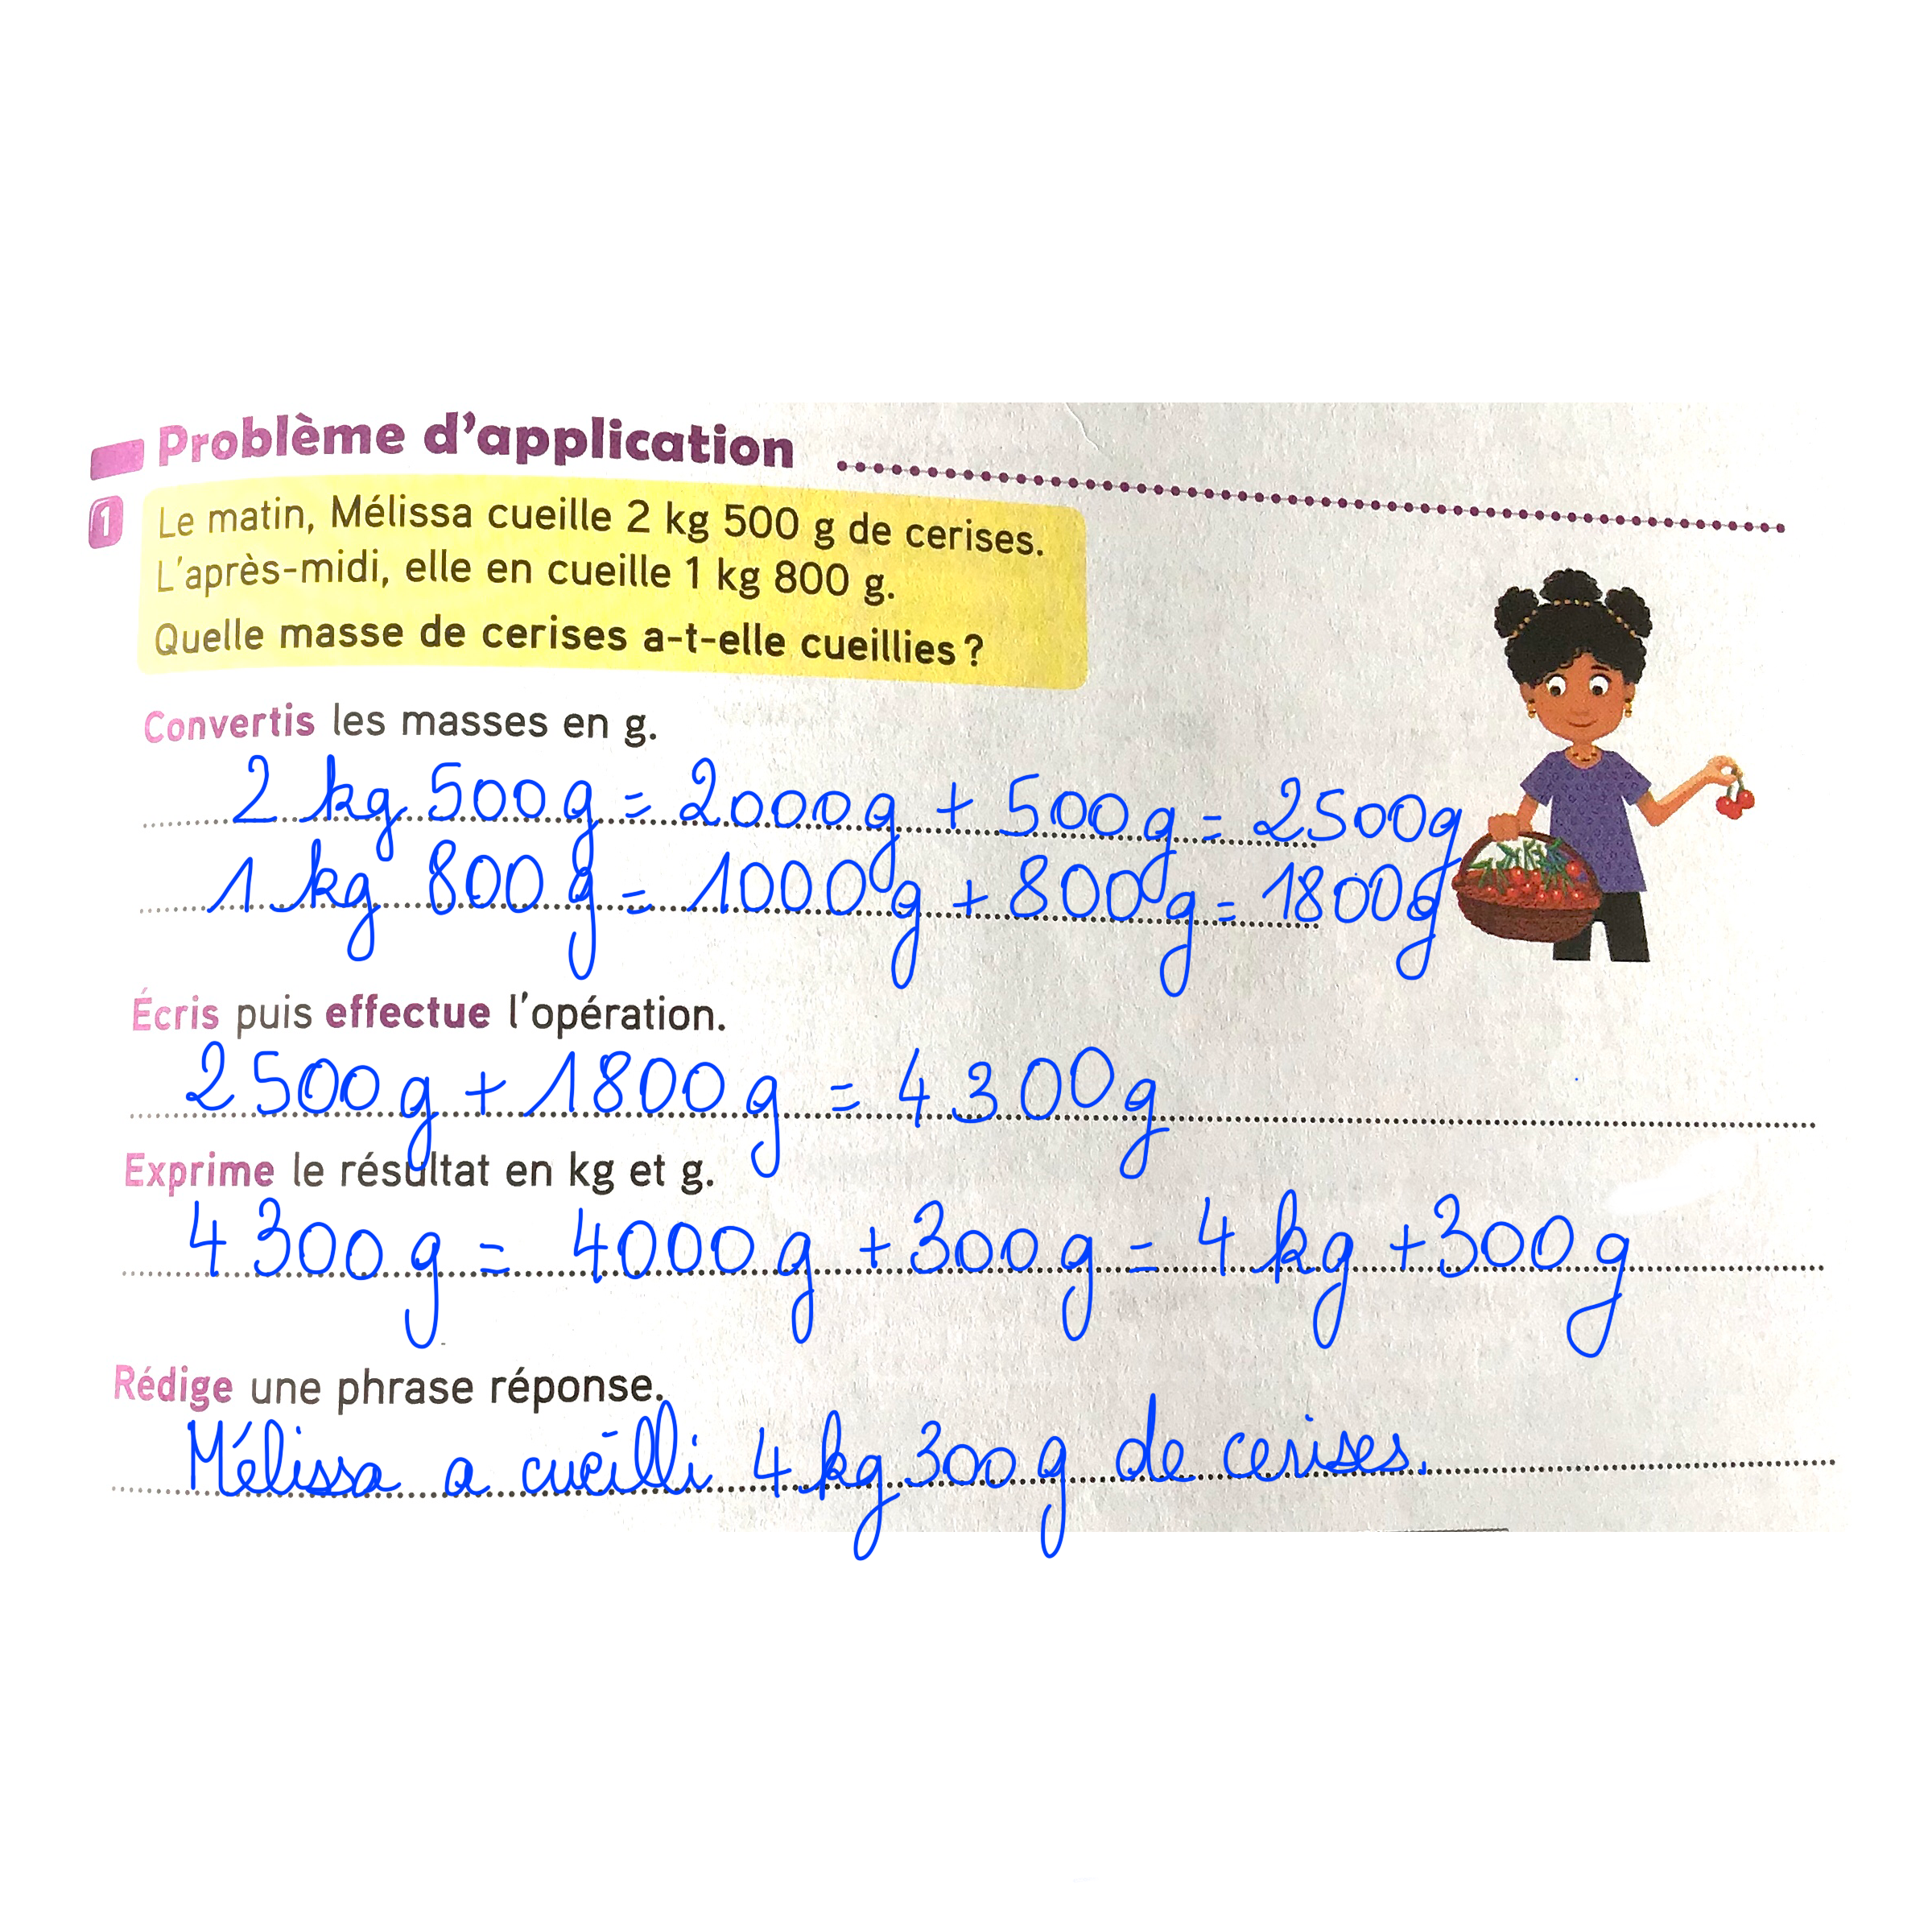 Problème d'application
1
Le matin, Mélissa cueille 2 kg 500 g de cerises.
L'après-midi, elle en cueille 1 kg 800 g.
Quelle masse de cerises a-t-elle cueillies ?
Convertis les masses en g.
2 kg 500 g = 2000 g + 500 g = 2500 g
1 kg 800 g = 1000 g + 800 g = 1800 g
Écris puis effectue l'opération.
2500 g + 1800 g = 4300 g
Exprime le résultat en kg et g.
4300 g = 4000 g + 300 g = 4 kg + 300 g
Rédige une phrase réponse.
Mélissa a cueilli 4 kg 300 g de cerises.